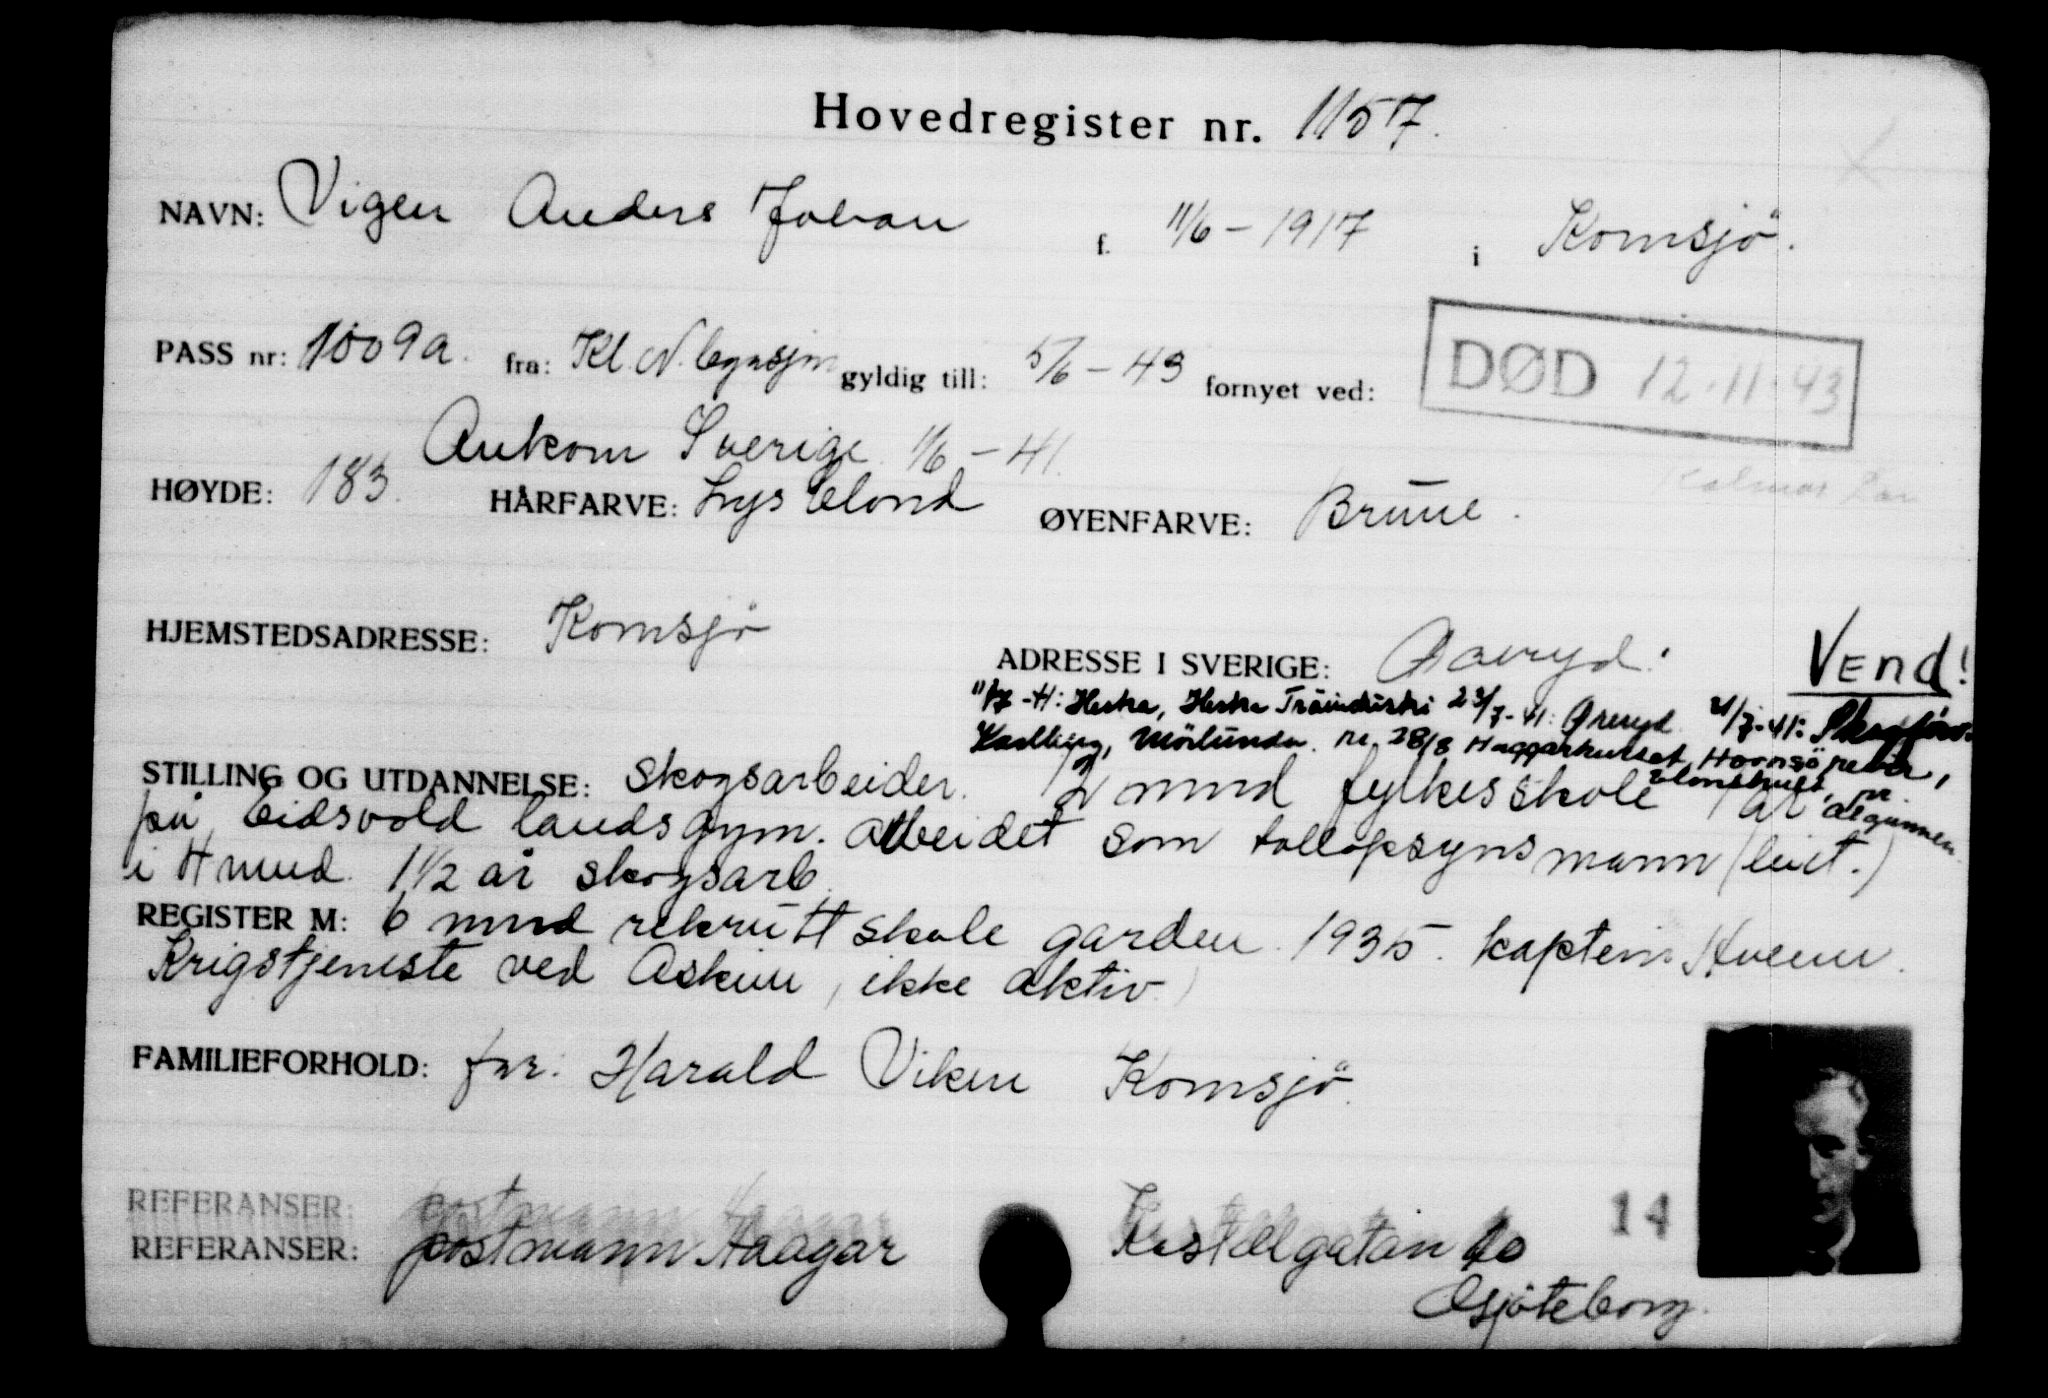 Hovedregister nr. 1157.
NAVN: Vigen Anders Johan f. 11/6 - 1917 i Komsjö.
PASS nr: 1009a. fra: Kl. N. gyldig till: 5/6 - 43 fornyet ved:
DØD 12.11.43
Ankom Sverige 1/6 - 41.
Kalmar
HØYDE: 183. HÅRFARVE: Lys blond ØYENFARVE: Brune.
HJEMSTEDSADRESSE: Komsjö
ADRESSE I SVERIGE: Vend!
11/7 - 41: Hestra, Hestra Träindustri 23/7 - 41: 21/7 - 41:
Mörlunda. re. 28/8 Haggarhultet, Hornsö
STILLING OG UTDANNELSE: Skogsarbeider. mnd fylkesskole 1 år
på Eidsvold landsgym. arbeidet som tollopsynsmann (lват.)
i 4 mnd. 1 1/2 år skogsarb.
REGISTER M: 6 mnd rekruttskole garden. 1935. kaptein
Krigstjeneste ved Askim, ikke aktiv.)
FAMILIEFORHOLD: far: Harald Viken Komsjö.
REFERANSER: postmann
REFERANSER: postmann Haagar Kastelgatan
14
Gjöteborg.